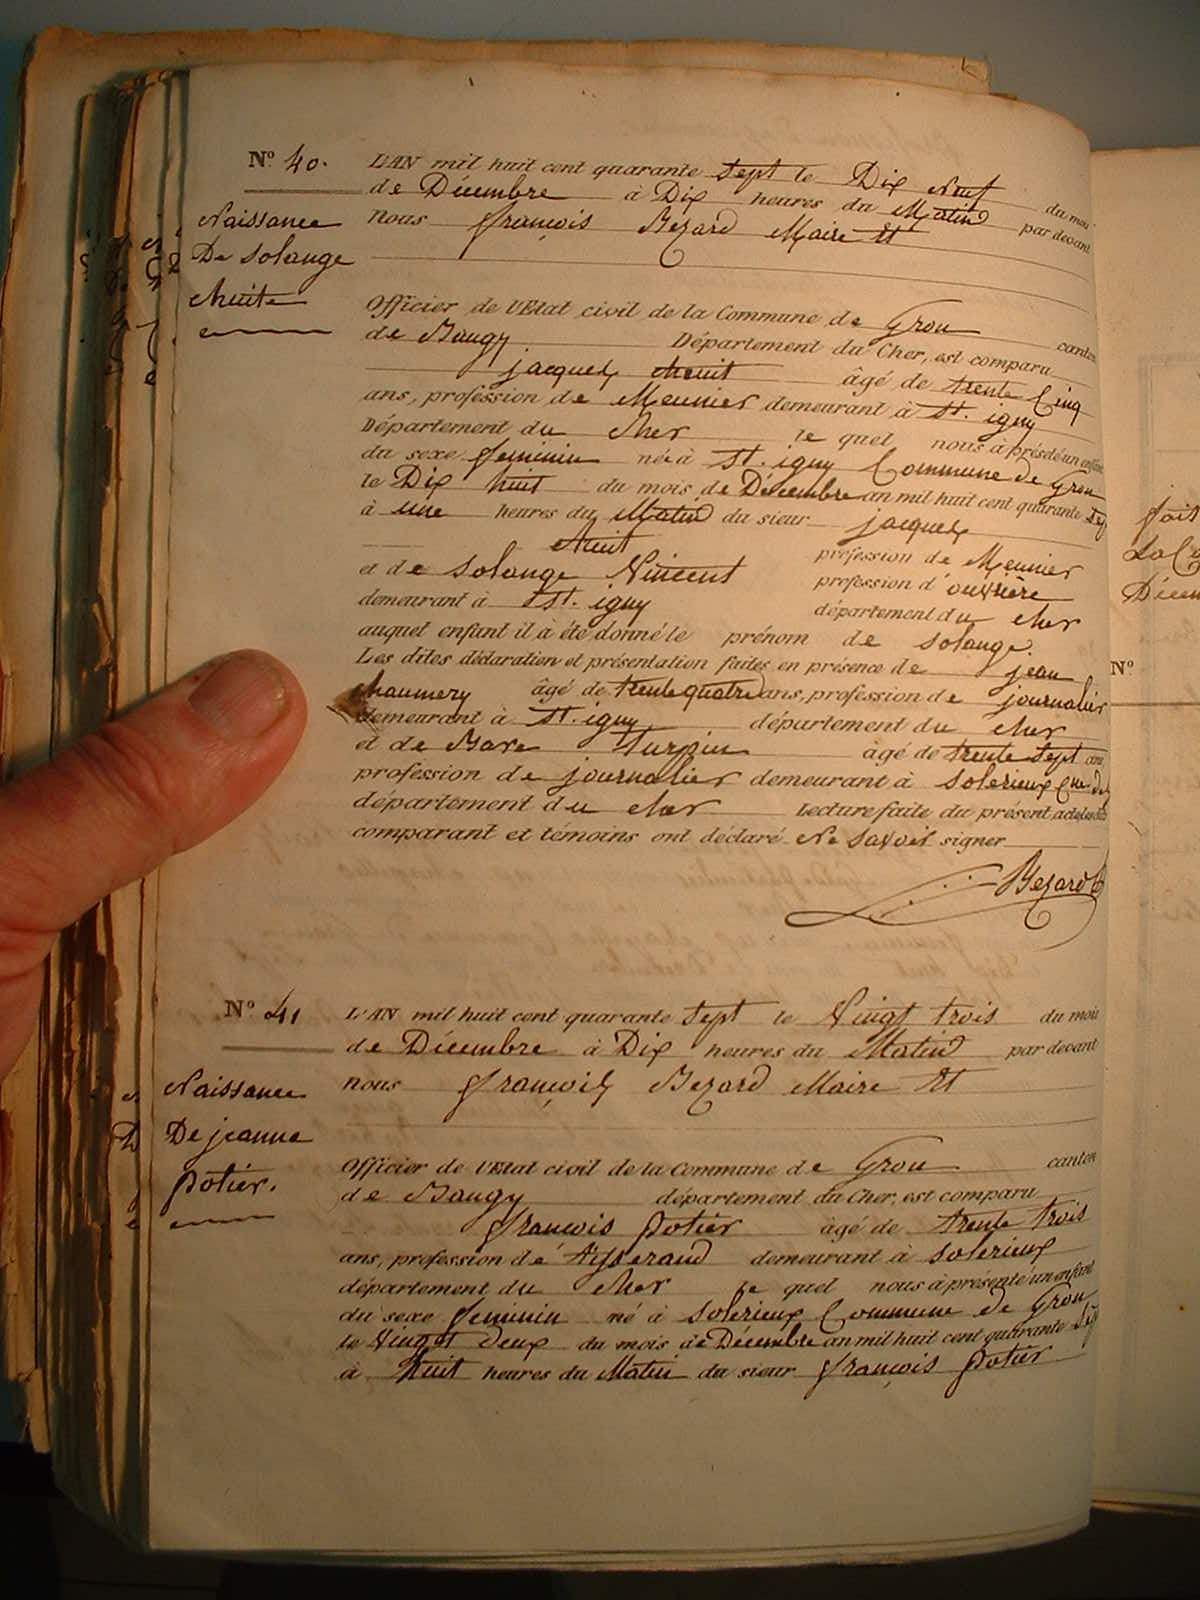 N° 40.
Naissance
De Solange
chuit
L'AN mil huit cent quarante sept le Dix Neuf du mois
de Décembre à Dix heures du Matin par devant
nous françois Bezard Maire Et
Officier de l'Etat civil de la Commune de Grou canton
de Baugy Département du Cher, est comparu
jacques chuit âgé de trente Cinq
ans, profession de Meunier demeurant à St. igny
Département du cher le quel nous à présenté un enfant
du sexe feminin né à St. igny Commune de Grou
le Dix huit du mois de Décembre an mil huit cent quarante sept
à une heures du Matin du sieur jacques
chuit profession de Meunier
et de Solange Vincent profession d'ouvrière
demeurant à St. igny département du cher
auquel enfant il à été donné le prénom de solange.
Les dites déclaration et présentation faites en présence de jean
chaumery âgé de trente quatre ans, profession de journalier
demeurant à St. igny département du cher
et de Turpin âgé de trente sept ans
profession de journalier demeurant à solerieux
département du cher Lecture faite du présent acte, les dits
comparant et témoins ont déclaré Ne savoir signer
Bezard
N° 41
Naissance
De jeanne
potier.
L'AN mil huit cent quarante sept le Vingt trois du mois
de Décembre à Dix heures du Matin par devant
nous françois Bezard Maire Et
Officier de l'Etat civil de la Commune de Grou canton
de Baugy département du Cher, est comparu
françois potier âgé de trente trois
ans, profession de Tisserand demeurant à solerieux
département du cher le quel nous à présenté un enfant
du sexe feminin né à solerieux Commune de Grou
le Vingt deux du mois de Décembre an mil huit cent quarante sept
à huit heures du Matin du sieur françois potier
fait
Décem
N°